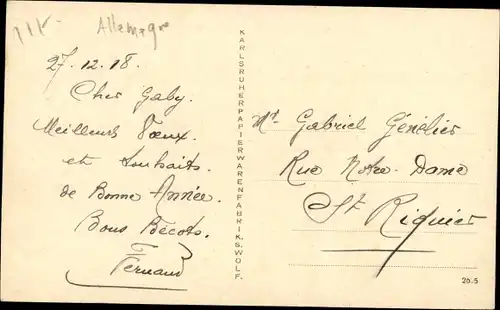 Allemagne
27.12.18.
Cher Gaby.
Meilleurs Voeux.
et Souhaits.
de Bonne Année.
Bons Bécots.
Fernand
KARLSRUHER PAPIERWARENFABRIK S. WOLF.
Mr. Gabriel Génélier
Rue Notre-Dame
St Riquier
26.5